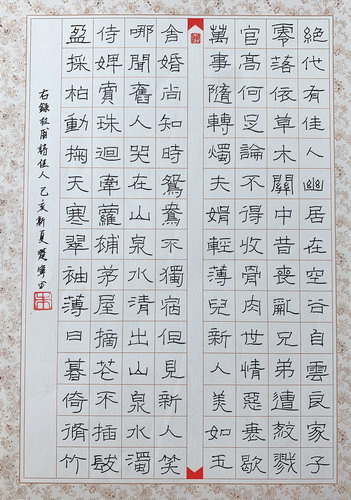 絕代有佳人幽居在空谷自雲良家子
零落依草木關中昔喪亂兄弟遭殺戮
官高何足論不得收骨肉世情惡衰歇
萬事隨轉燭夫婿輕薄兒新人美如玉
舍婚尚知時鴛鴦不獨宿但見新人笑
哪聞舊人哭在山泉水清出山泉水濁
侍婢賣珠迴牽蘿補茅屋摘花不插髮
盈採柏動掬天寒翠袖薄日暮倚脩竹
右錄杜甫詩佳人乙亥新夏